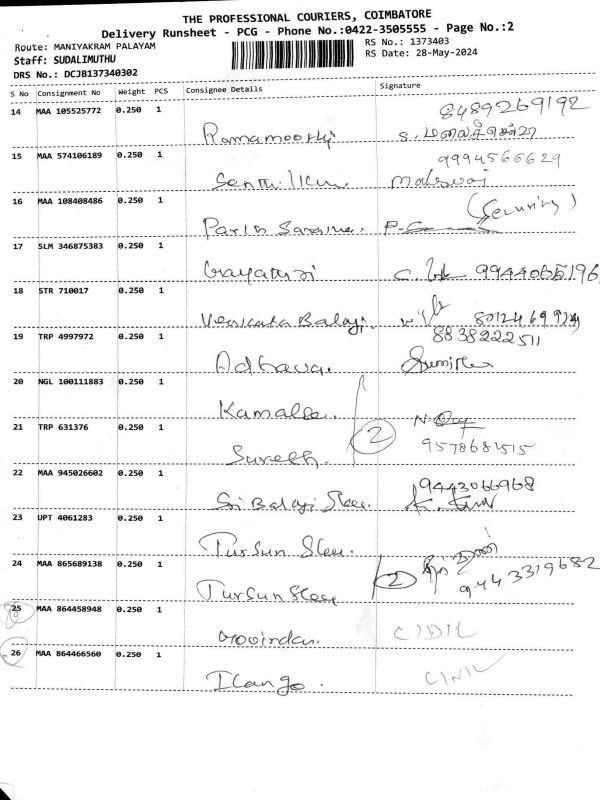 THE PROFESSIONAL COURIERS, COIMBATORE
Delivery Runsheet - PCG - Phone No.:0422-3505555 - Page No.:2
Route: MANIYAKRAM PALAYAM
RS No.: 1373403
Staff: SUDALIMUTHU
RS Date: 28-May-2024
DRS No.: DCJB137340302
S No Consignment No Weight PCS Consignee Details Signature
14 MAA 105525772 0.250 1 8489269192
Ramamoorthy
15 MAA 574106189 0.250 1 9994566629
Senthilkum
16 MAA 108408486 0.250 1 (Security)
17 SLM 346875383 0.250 1
Gayathri 9944066196
18 STR 710017 0.250 1
Venkata Balaji 8012469924
19 TRP 4997972 0.250 1 8838222511
Adhava.
20 NGL 100111883 0.250 1
Kamalee.
21 TRP 631376 0.250 1 2
Suresh. 9578684515
22 MAA 945026602 0.250 1 9443066968
Sri Balaji Steel. K. Kumar
23 UPT 4061283 0.250 1
Tursun Steel.
24 MAA 865689138 0.250 1 2 9443319682
Tursun Steel
25 MAA 864458948 0.250 1
Govindan. CIDIL
26 MAA 864466560 0.250 1
Ilango. CIVIL